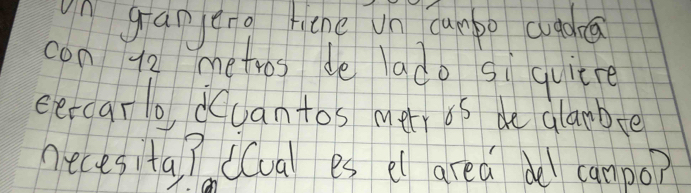 Un granjero tiene un campo cuadra
con 12 metros de lado si quiere
cercarlo, ¿Cuantos metros de alambre
necesita,? ¿Cual es el areá del campo?